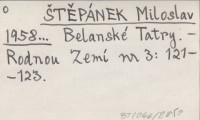 o
ŠTĚPÁNEK Miloslav
1958... Belanské Tatry. -
Rodnou Zemí nr 3: 121-
-123.